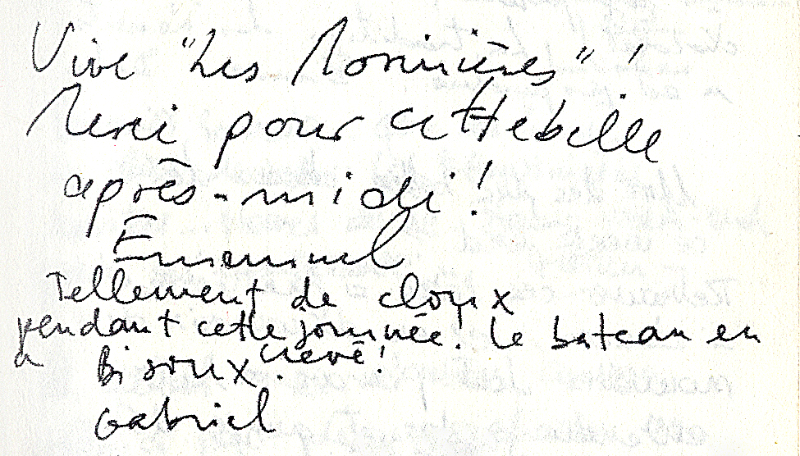 Vive "Les Monnières" !
Merci pour cette belle
après-midi !
Emanuel
Tellement de cloux
pendant cette journée. Le bateau en
a crevé !
Bisoux
Gabriel